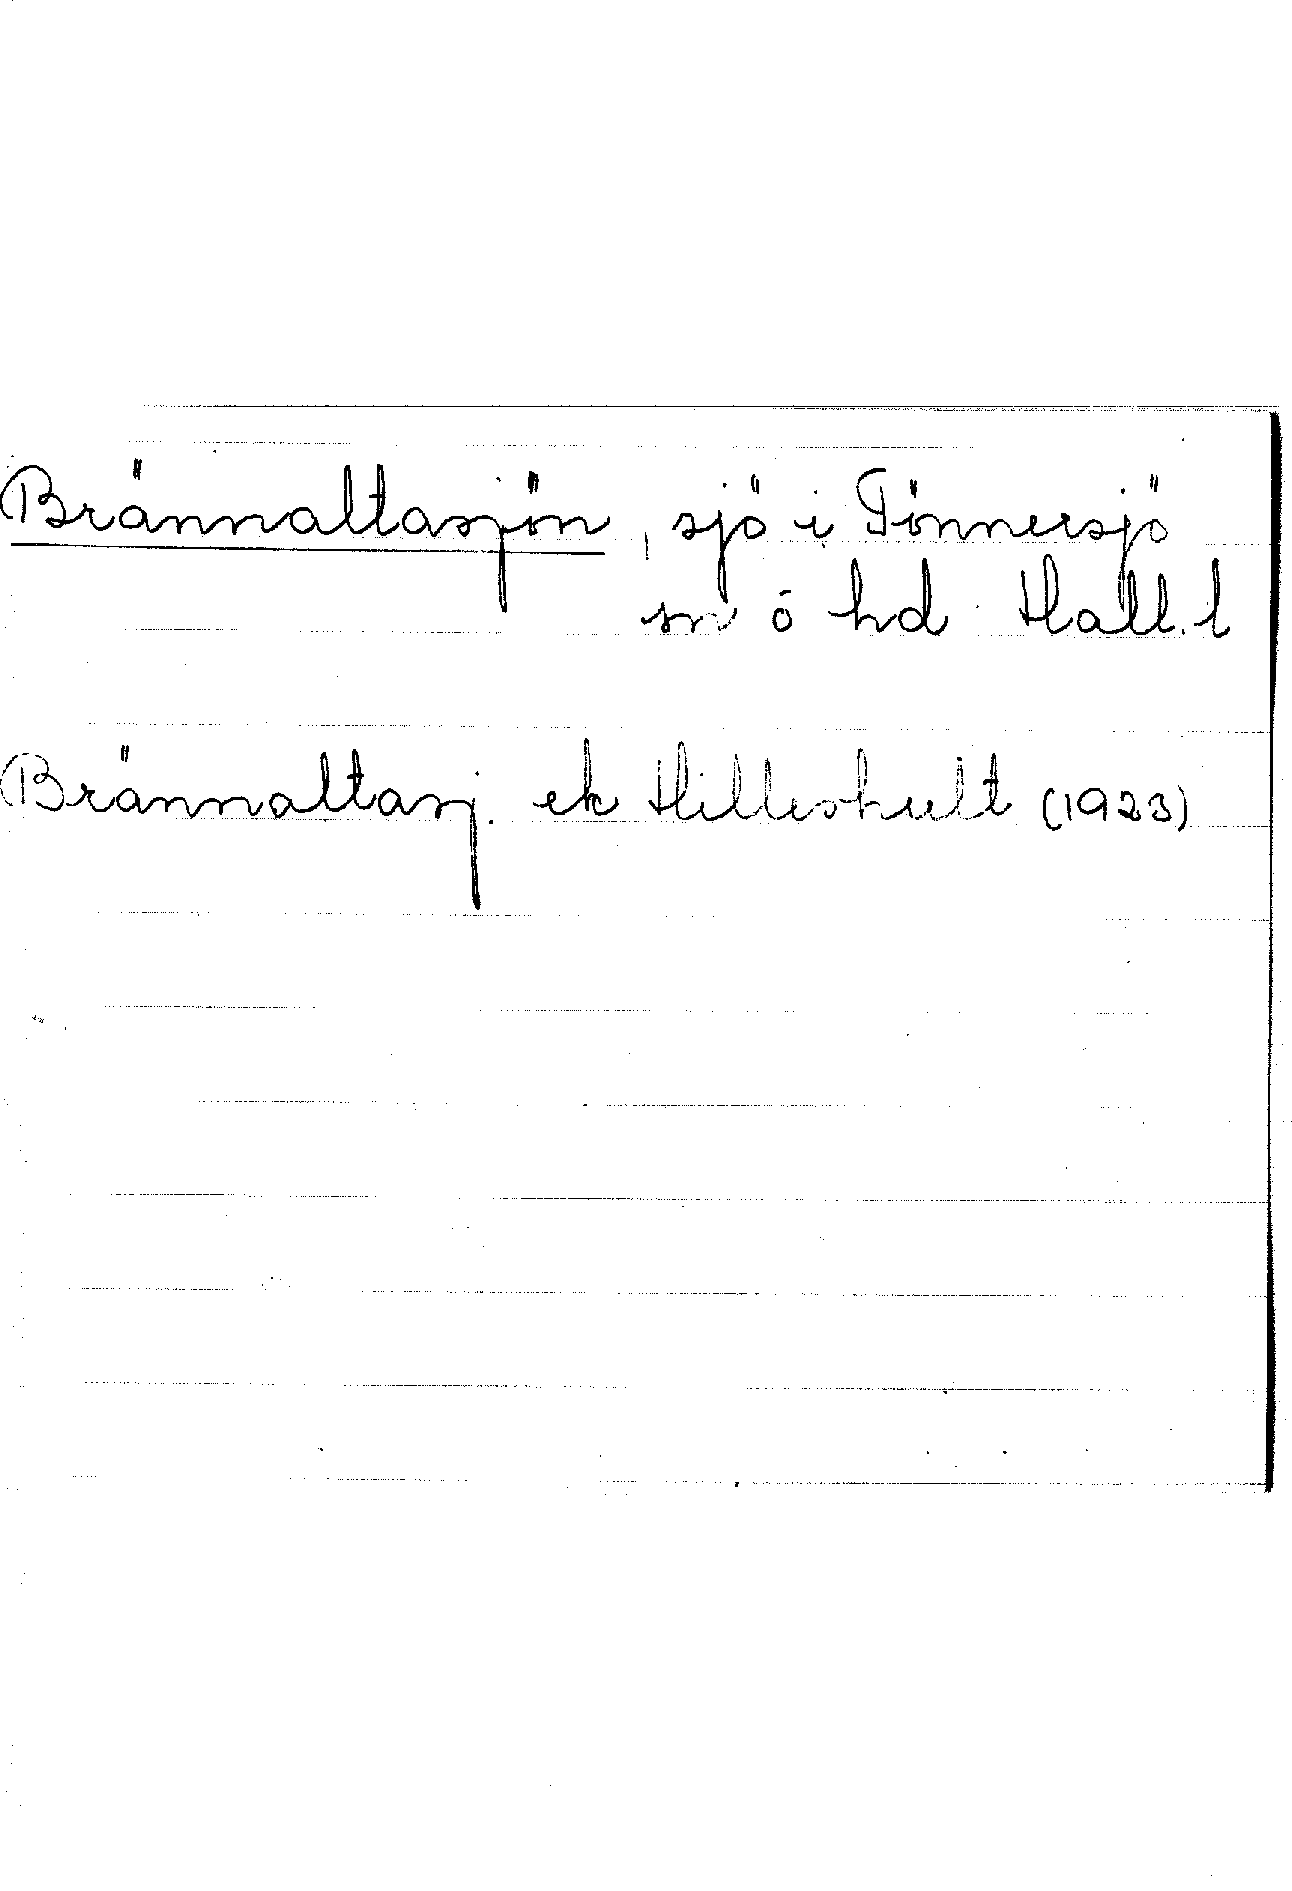 Brännaltasjön, sjö i Tönnersjö
sn o hd Hall. l
Brännaltasj. ek Hilleshult (1923)